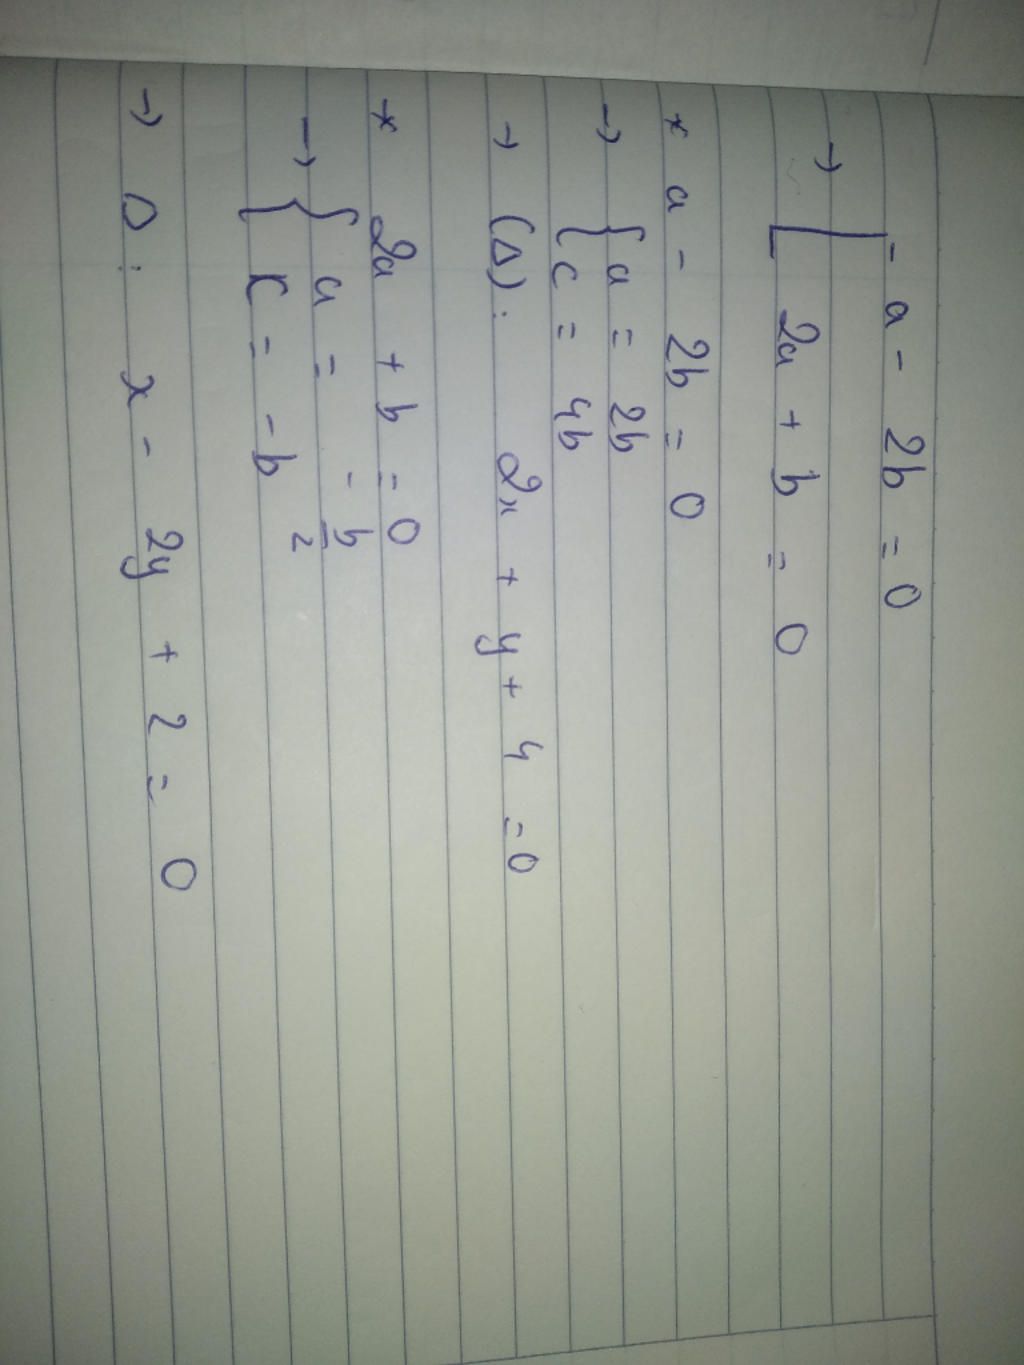 → [ a - 2b = 0
2a + b = 0
* a - 2b = 0
→ { a = 2b
c = 4b
→ (Δ): 2x + y + 4 = 0
* 2a + b = 0
→ { a = -b/2
c = -b
→ Δ: x - 2y + 2 = 0